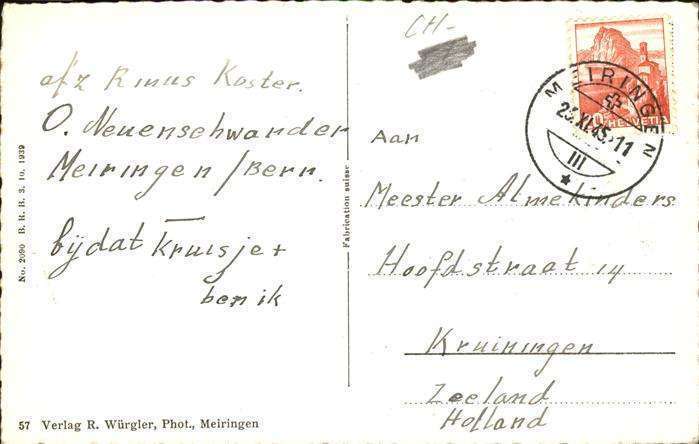 CH-
afz Rinus Koster.
O. Neuenschwander
Meiringen / Bern.
bÿdat Kruisje +
ben ik
No. 2090 B. R. B. 3. 10. 1939
Fabrication suisse
57 Verlag R. Würgler, Phot., Meiringen
HELVETIA
MEIRINGEN
XI.45.-11
III
Aan
Meester Almekinders
Hoofdstraat 14
Kruiningen
Zeeland
Holland